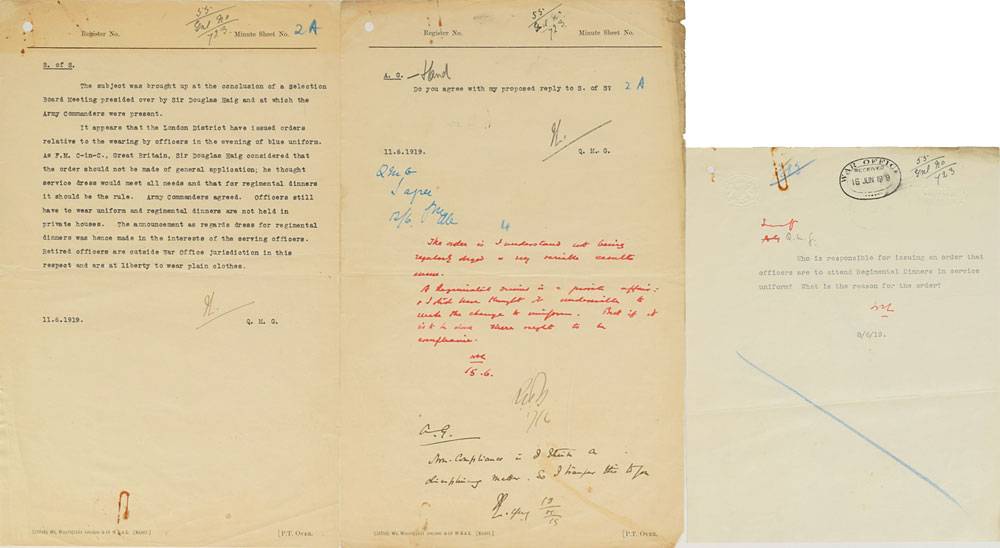 55
Gnl No
723
2A
Register No.
Minute Sheet No.
S. of S.
The subject was brought up at the conclusion of a Selection
Board Meeting presided over by Sir Douglas Haig and at which the
Army Commanders were present.
It appears that the London District have issued orders
relative to the wearing by officers in the evening of blue uniform.
As F.M. C-in-C., Great Britain, Sir Douglas Haig considered that
the order should not be made of general application; he thought
service dress would meet all needs and that for regimental dinners
it should be the rule. Army Commanders agreed. Officers still
have to wear uniform and regimental dinners are not held in
private houses. The announcement as regards dress for regimental
dinners was hence made in the interests of the serving officers.
Retired officers are outside War Office jurisdiction in this
respect and are at liberty to wear plain clothes.
11.6.1919.
Q. M. G.
[P.T. Over.
55
Gnl No
723
Register No.
Minute Sheet No.
A. G.
Do you agree with my proposed reply to S. of S? 2A
11.6.1919.
Q. M. G.
QMG
I agree
12/6.
The order is I understand not being
regularly obeyed & very variable results
ensue.
A Regimental Dinner is a private affair:
& I should have thought it undesirable to
make the change to uniform. But if it
is to be done there ought to be
compliance.
15.6.
A.G.
Non-Compliance is I think a
disciplinary matter. So I transfer this to you
[P.T. Over.
WAR OFFICE
RECEIVED
16 JUN 1919
55
Gnl No
723
Q.M.G.
Who is responsible for issuing an order that
officers are to attend Regimental Dinners in service
uniform? What is the reason for the order?
8/6/19.